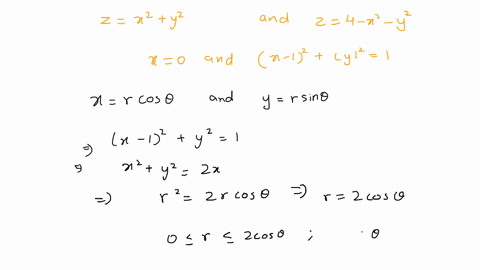 z = x² + y² and z = 4 - x² - y²
x = 0 and (x-1)² + (y)² = 1
x = r cos θ and y = r sin θ
⇒ (x-1)² + y² = 1
⇒ x² + y² = 2x
⇒ r² = 2r cos θ ⇒ r = 2 cos θ
0 ≤ r ≤ 2 cos θ ; θ